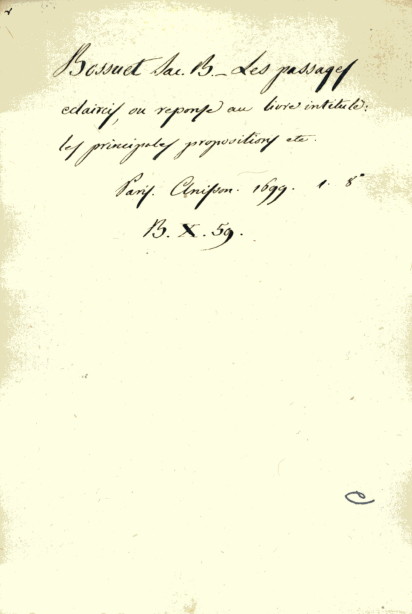 Bossuet Jac. B. – Les passages
eclaircis, ou reponse au livre intitule:
les principales propositions etc.
Paris. Anisson. 1699. 1. 8°
B. X. 59.
C